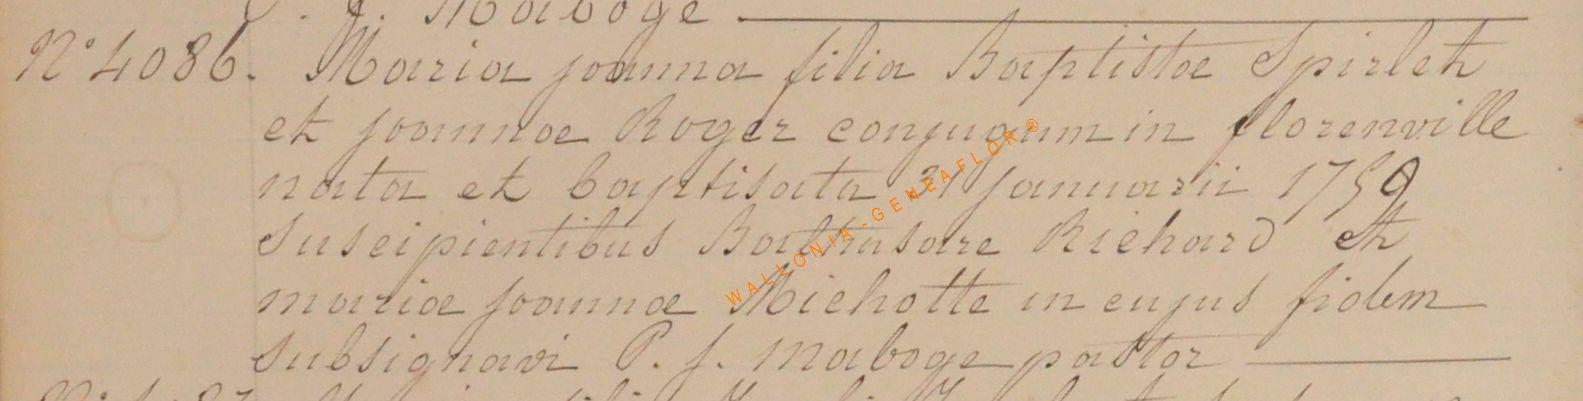 P. J. Maboge
N° 4086. Maria joanna filia Baptistae Spirlet
et joannae Roger conjugum in florenville
nata et baptisata 31 januarii 1759
suscipientibus Balthasare Richard et
mariae joannae Michotte in cujus fidem
subsignavi P. J. Maboge pastor
WALLONIA-GENEAFLOR®